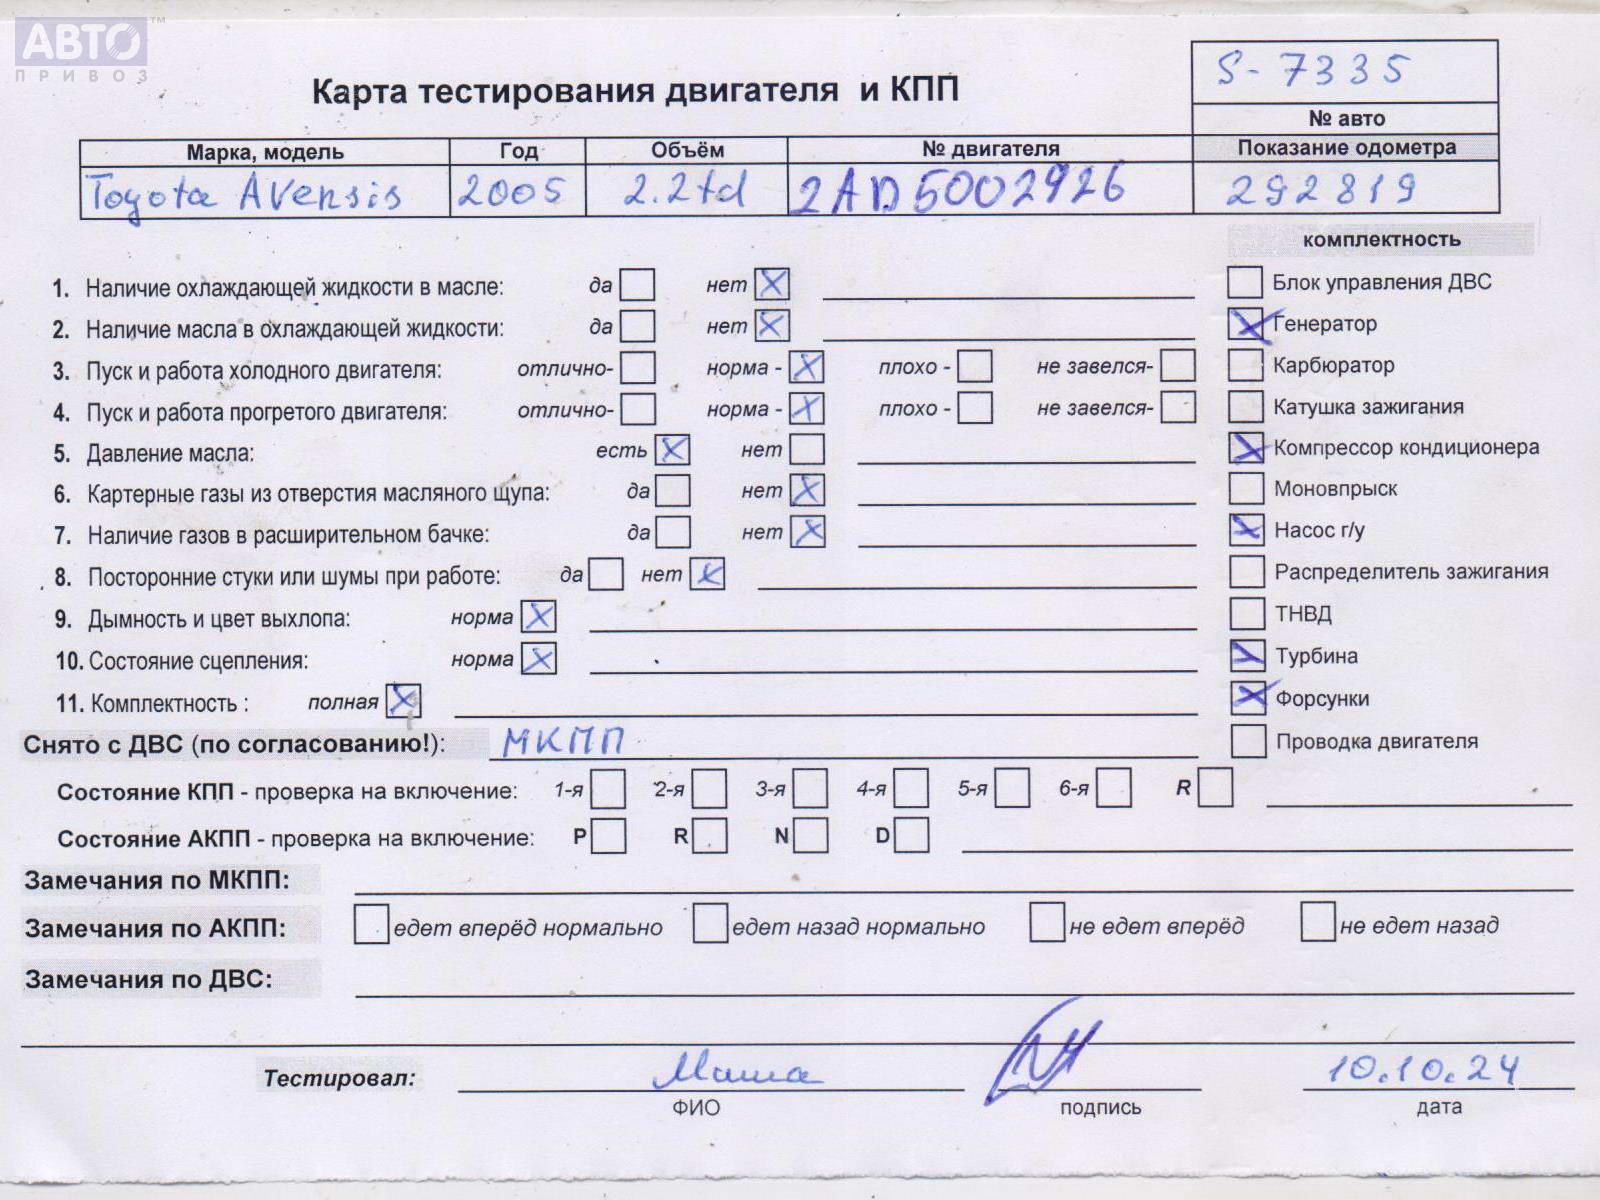 АВТО™
ПРИВОЗ
S-7335
Карта тестирования двигателя и КПП
№ авто
Марка, модель Год Объём № двигателя Показание одометра
Toyota Avensis 2005 2.2td 2AD5002926 292819
комплектность
1. Наличие охлаждающей жидкости в масле: да нет
Блок управления ДВС
2. Наличие масла в охлаждающей жидкости: да нет
Генератор
3. Пуск и работа холодного двигателя: отлично- норма - плохо - не завелся-
Карбюратор
4. Пуск и работа прогретого двигателя: отлично- норма - плохо - не завелся-
Катушка зажигания
5. Давление масла: есть нет
Компрессор кондиционера
6. Картерные газы из отверстия масляного щупа: да нет
Моновпрыск
7. Наличие газов в расширительном бачке: да нет
Насос г/у
8. Посторонние стуки или шумы при работе: да нет
Распределитель зажигания
9. Дымность и цвет выхлопа: норма
ТНВД
10. Состояние сцепления: норма
Турбина
11. Комплектность : полная
Форсунки
Снято с ДВС (по согласованию!): МКПП
Проводка двигателя
Состояние КПП - проверка на включение: 1-я 2-я 3-я 4-я 5-я 6-я R
Состояние АКПП - проверка на включение: P R N D
Замечания по МКПП:
Замечания по АКПП: едет вперёд нормально едет назад нормально не едет вперёд не едет назад
Замечания по ДВС:
Тестировал: Миша 10.10.24
ФИО подпись дата